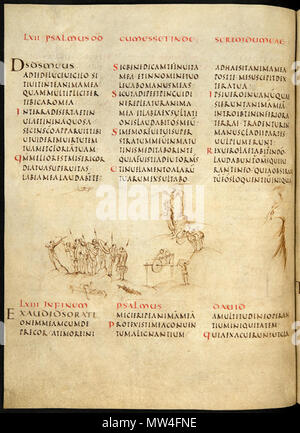 LXII PSALMUS DD
CUM ESSET IN DE
SERTO IDUMEAE
DSDSMEUS
ADTEDELUCEUIGILO SI
TIUITINTEANIMAMEA
QUAMMULTIPLICITER
TIBICAROMEA
INTERRADESERTAETIN
UIAETINAQUOSA
SICINSCOAPPARUITIBI
UTUIDEREMUIRTUTEM
TUAMETGLORIAMTUAM
QMMELIORESTMISERICOR
DIATUASUPERUITAS
LABIAMEALAUDABTTE
SICBENEDICAMTEINUITA
MEAETINNOMINETUO
LEUABOMANUSMEAS
SICUTADIPEETPINGUEDI
NEREPLEATURANIMA
MEAETLABIAEXULTATIO
NISLAUDABITOSMEUM
SIMEMORFUITUISUPER
STRATUMMEUMINMATU
TINISMEDITABORINTE
QUIAFUISTIADIUTORMS
ETINUELAMENTOALARU
TUARUMEXSULTABO
ADHAESITANIMAMEA
POSTTEMESUSCEPITDEX
TERATUA
IPSIUEROINUANUMQUAE
SIERUNTANIMAMEA
INTROIBUNTININFERIORA
TERRAETRADENTURIN
MANUSGLADIIPARTES
UULPIUMERUNT
REXUEROLAETABITINDO
LAUDABUNTOMSQUIIU
RANTINEO QUIAOBSTRU
TUESTOSLOQUENTIUINIQUA
LXIII IN FINEM
PSALMUS
DAUID
EXAUDIDSORATI
ONEMMEAMCUMDE
PRECOR ATIMOREINI
MICIERIPEANIMAMEA
PROTEXISTIMEACONUEN
TUMALIGNANTIUM
AMULTITUDINEOPERAN
TIUMINIQUITATEM
QUIAEXACUERUNTUT